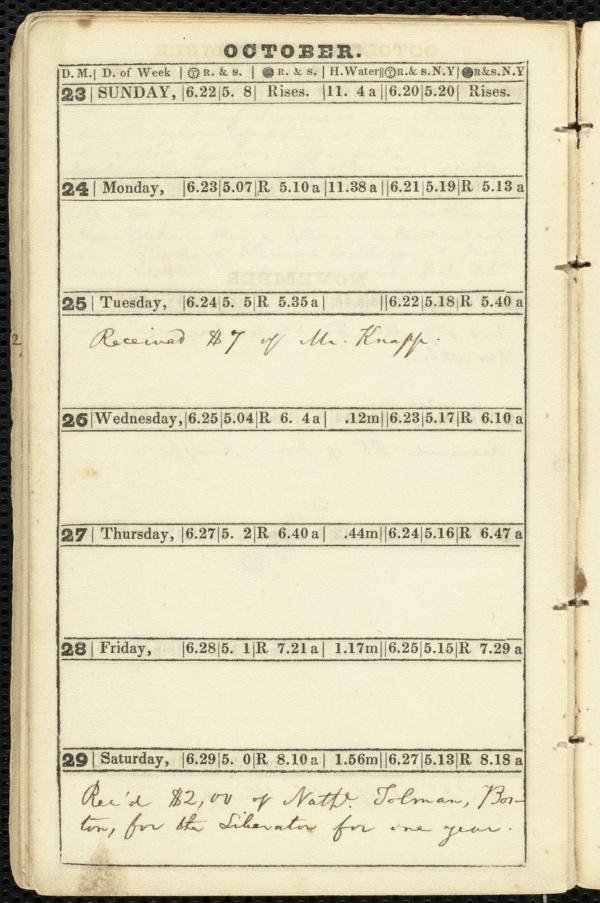 OCTOBER.
D. M.| D. of Week | R. & s. | R. & s. | H.Water|| R.& s.N.Y| R&s.N.Y
23 | SUNDAY, |6.22|5. 8| Rises. |11. 4 a||6.20|5.20| Rises.
24 | Monday, |6.23|5.07|R 5.10 a|11.38 a||6.21|5.19|R 5.13 a
25 | Tuesday, |6.24|5. 5|R 5.35 a| ||6.22|5.18|R 5.40 a
Received $7 of Mr. Knapp.
26 |Wednesday,|6.25|5.04|R 6. 4 a| .12m||6.23|5.17|R 6.10 a
27 | Thursday, |6.27|5. 2|R 6.40 a| .44m||6.24|5.16|R 6.47 a
28 | Friday, |6.28|5. 1|R 7.21 a| 1.17m||6.25|5.15|R 7.29 a
29 | Saturday, |6.29|5. 0|R 8.10 a| 1.56m||6.27|5.13|R 8.18 a
Rec'd $2,00 of Nathl. Tolman, Bos-
ton, for the Liberator for one year.